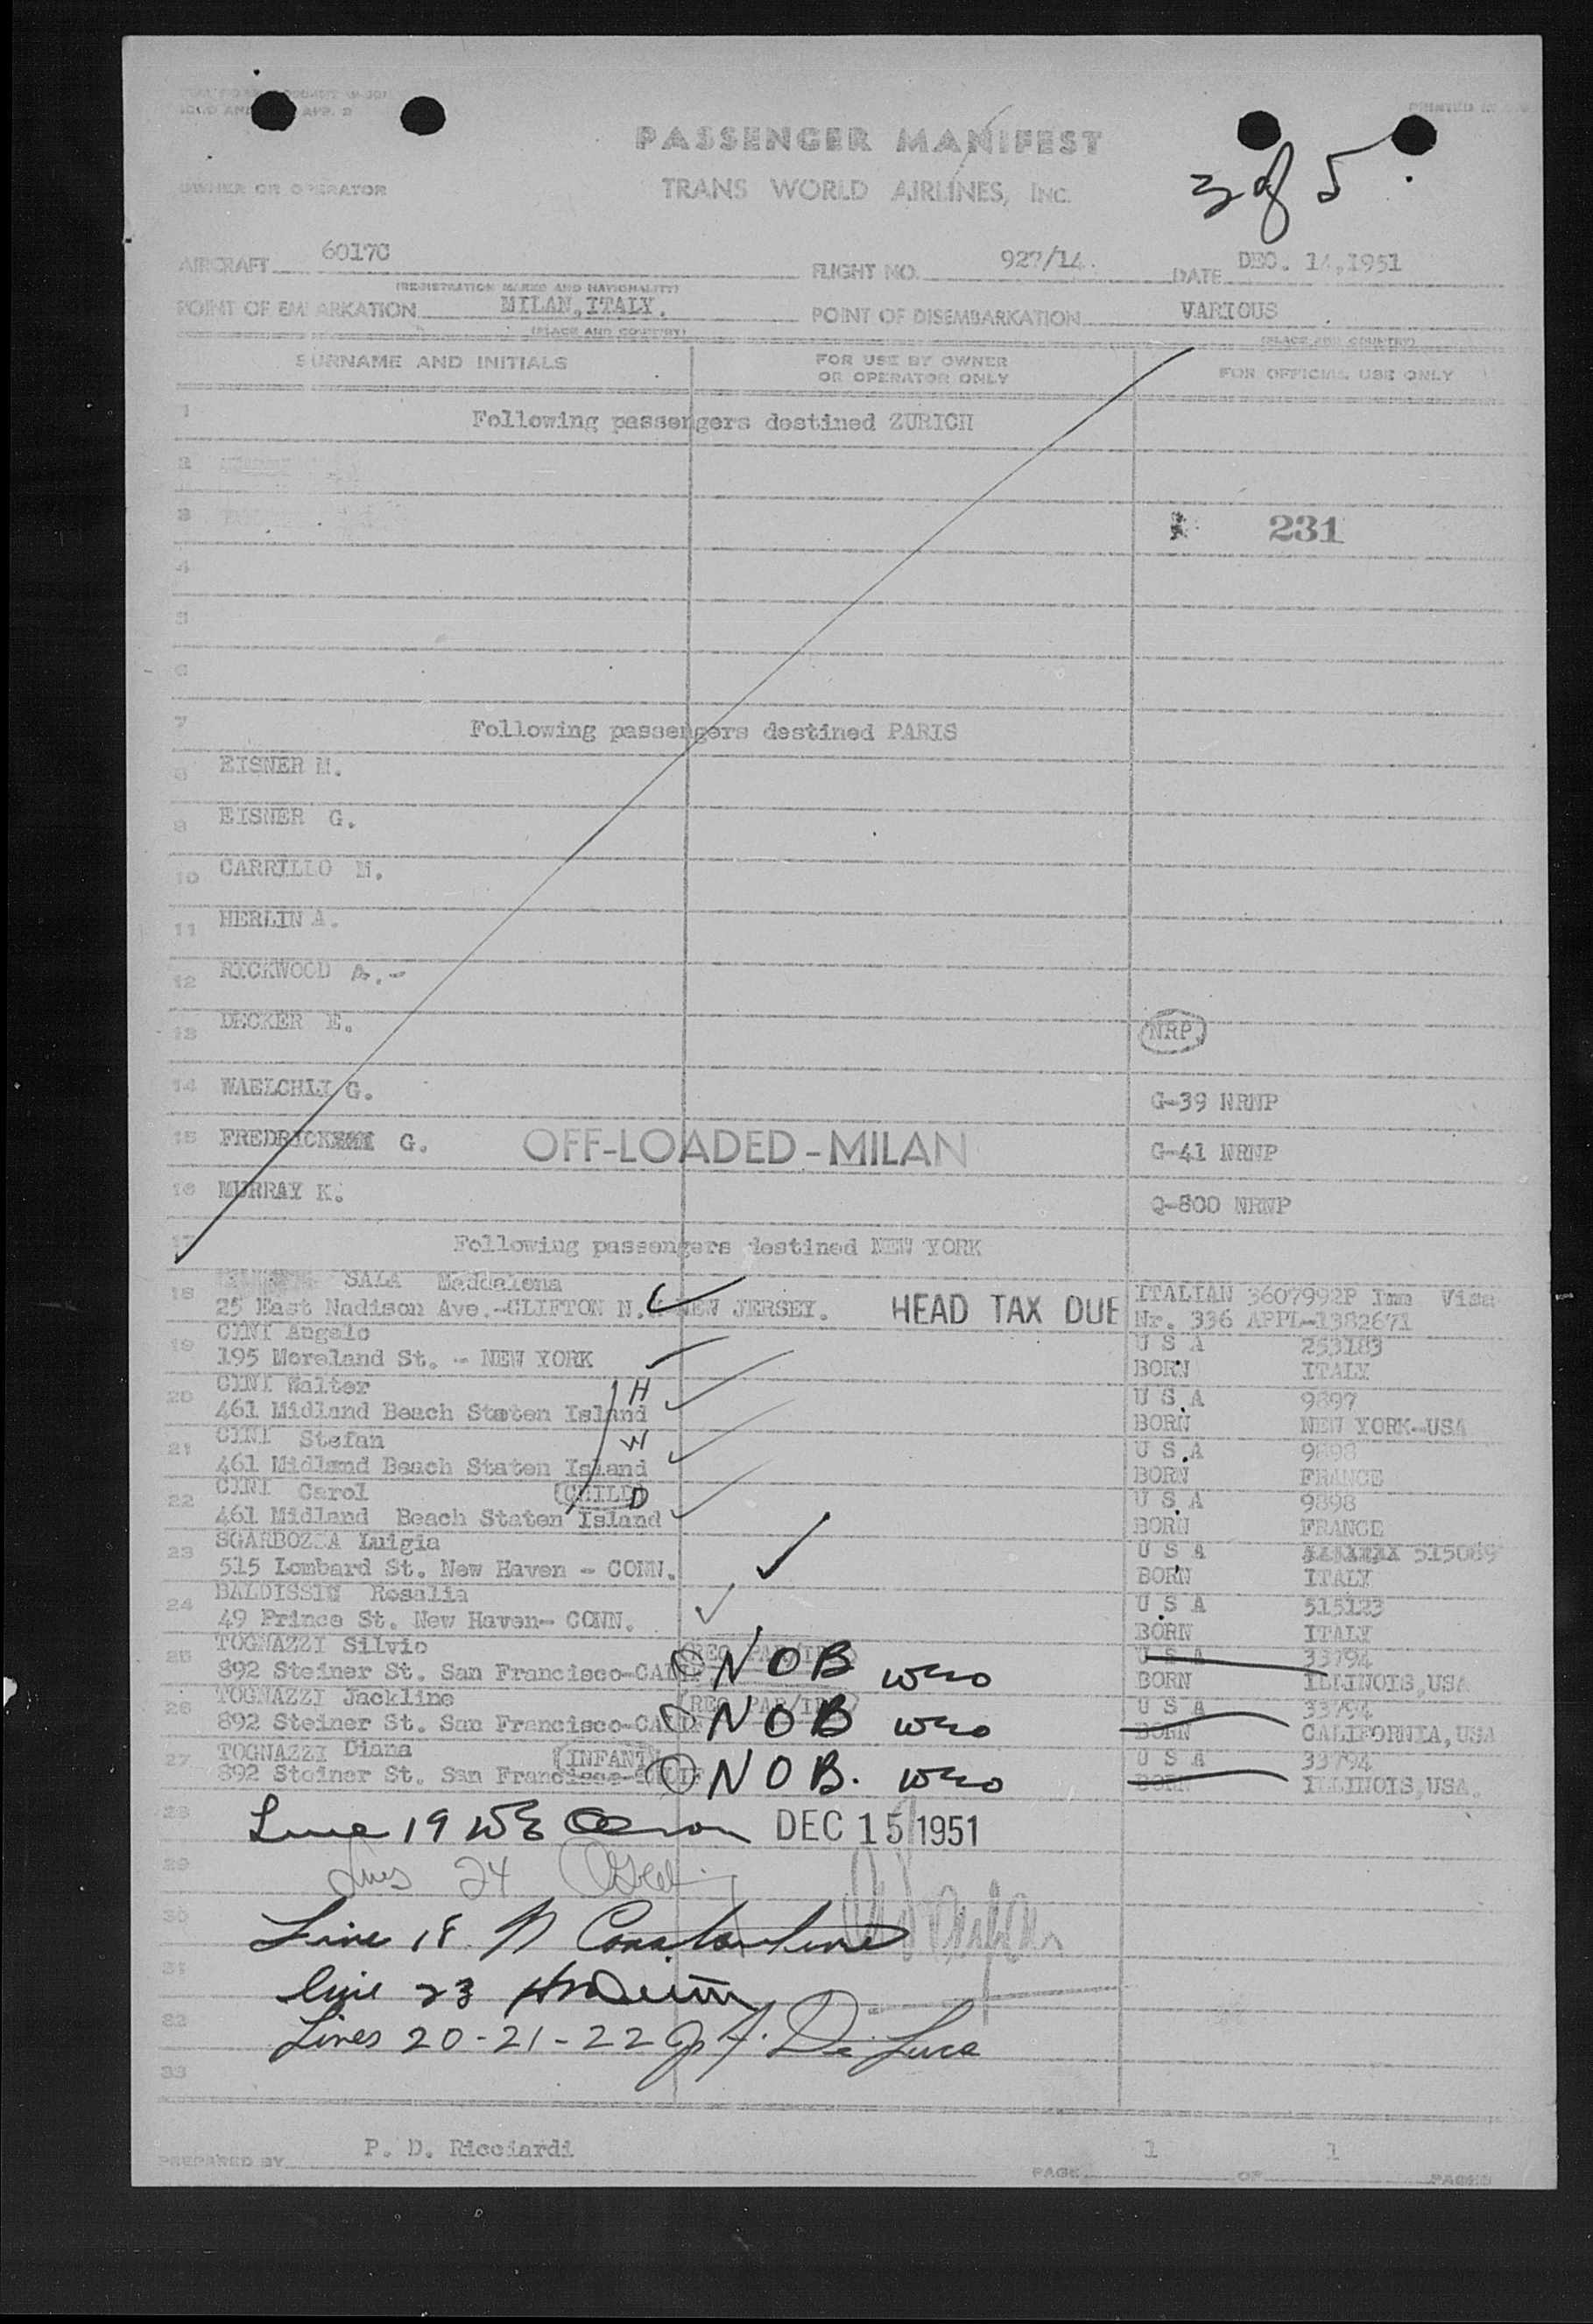 PRINTED IN
PASSENGER MANIFEST
OWNER OR OPERATOR
TRANS WORLD AIRLINES, INC.
3 of 5
AIRCRAFT 6017C
FLIGHT NO. 927/14.
DATE DEC. 14,1951
(REGISTRATION MARKS AND NATIONALITY)
POINT OF EMBARKATION MILAN,ITALY.
POINT OF DISEMBARKATION VARIOUS
(PLACE AND COUNTRY)
(PLACE AND COUNTRY)
SURNAME AND INITIALS
FOR USE BY OWNER OR OPERATOR ONLY
FOR OFFICIAL USE ONLY
1 Following passengers destined ZURICH
2
3 231
4
5
6
7 Following passengers destined PARIS
8 EISNER M.
9 EISNER G.
10 CARRILLO M.
11 HERLIN A.
12 RICKWOOD A.-
13 DECKER E. NRP.
14 WAELCHLI G. G-39 NRNP
15 G. OFF-LOADED-MILAN G-41 NRNP
16 MURRAY K. Q-800 NRNP
17 Following passengers destined NEW YORK
18 SALA Maddalena ITALIAN 3607992P Imm Visa
25 East Nadison Ave.-CLIFTON N. NEW JERSEY. HEAD TAX DUE Nr. 336 APPL-1382671
19 CINI Angelo U S A 253183
195 Moreland St. - NEW YORK BORN ITALY
20 CINI Walter H U S A 9897
461 Midland Beach Staten Island BORN NEW YORK-USA
21 CINI Stefan W U S A 9898
461 Midland Beach Staten Island BORN FRANCE
22 CINI Carol (CHILD) D U S A 9898
461 Midland Beach Staten Island BORN FRANCE
23 SGARBOZZA Luigia U S A 515089
515 Lombard St. New Haven - CONN. BORN ITALY
24 BALDISSIN Rosalia U S A 515123
49 Prince St. New Haven- CONN. BORN ITALY
25 TOGNAZZI Silvio U S A 33794
892 Steiner St. San Francisco-CALIF NOB BORN ILLINOIS,USA
26 TOGNAZZI Jackline U S A 33794
892 Steiner St. San Francisco-CALIF NOB BORN CALIFORNIA,USA
27 TOGNAZZI Diana (INFANT) U S A 33794
892 Steiner St. San Francisco-CALIF NOB. BORN ILLINOIS,USA.
28 Line 19 DEC 15 1951
29 Lines 24
30 Line 18 N Constantine
31 line 23
32 Lines 20-21-22 J. De Luca
33
PREPARED BY P. D. Ricciardi
PAGE 1 OF 1 PAGES